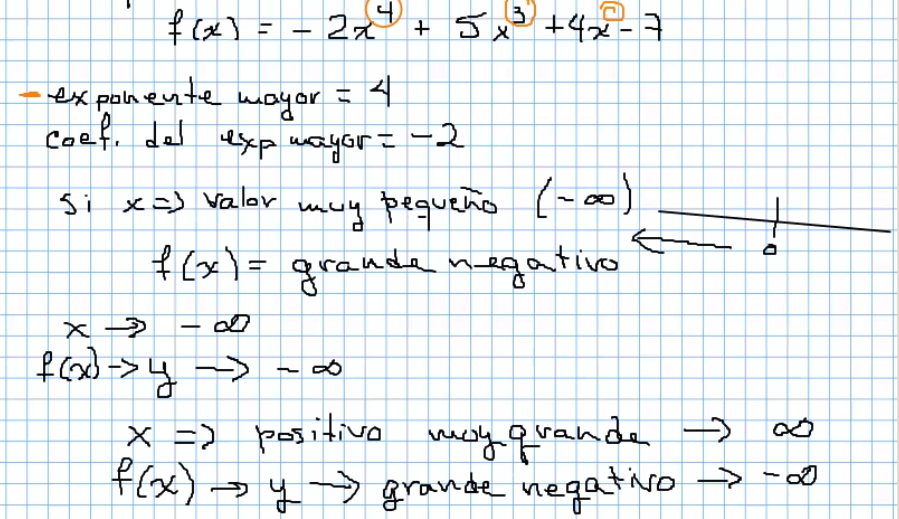 f(x) = - 2x⁴ + 5x³ + 4x - 7
- exponente mayor = 4
coef. del exp mayor = -2
si x => valor muy pequeño (-∞)
0
f(x) = grande negativo
x → -∞
f(x) -> y → -∞
x => positivo muy grande → ∞
f(x) → y → grande negativo → -∞